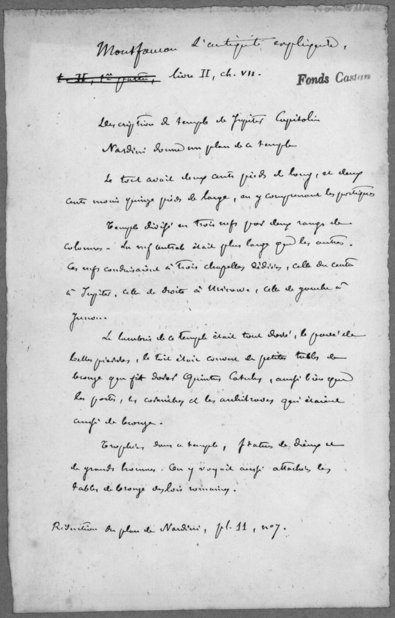 Montfaucon L'antiquité expliquée,
t. II, 1re partie, livre II, ch. VII.
Fonds Castan
Description du temple de Jupiter Capitolin
Nardini donne un plan de ce temple
Le tout avait deux cents pieds de long, et deux
cents moins quinze pieds de large, en y comprenant les portiques
Temple divisé en trois nefs par deux rangs de
colonnes. La nef centrale était plus large que les autres.
Ces nefs conduisaient à trois chapelles dédiées, celle du centre
à Jupiter, celle de droite à Minerve, celle de gauche à
Junon.
Le lambris de ce temple était tout doré, le pavé de
belles pierres, le toit était couvert de petites tables de
bronze que fit dorer Quintus Catulus, aussi bien que
les portes, les corniches et les architraves qui étaient
aussi de bronze.
Trophées dans ce temple, statues de dieux et
de grands hommes. On y voyait aussi attachées les
tables de bronze des lois romaines.
Réduction du plan de Nardini, pl. 11, no 7.